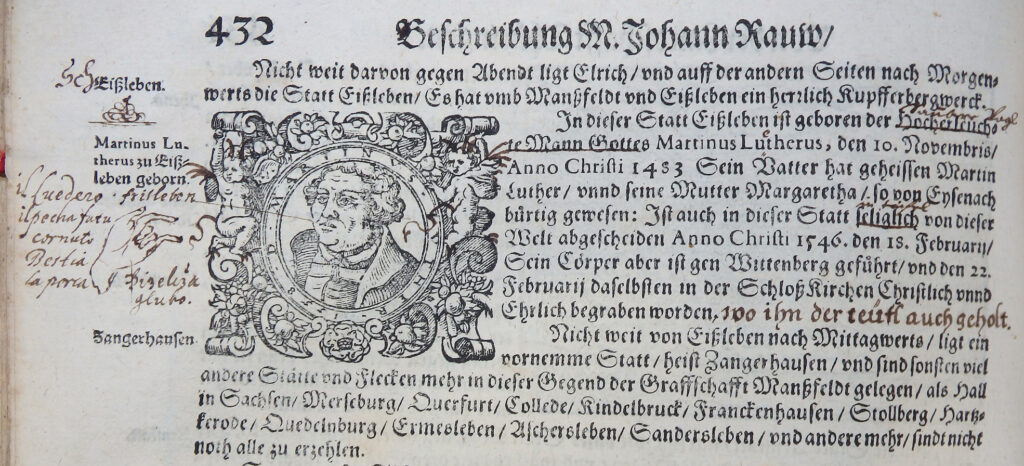 432 Beschreibung M. Johann Rauw/
Nicht weit darvon gegen Abendt ligt Elrich/ vnd auff der andern Seiten nach Morgen-
werts die Statt Eißleben/ Es hat vmb Manßfeldt vnd Eißleben ein herrlich Kupfferbergwerck.
In dieser Statt Eißleben ist geboren der Hocherleuch-
te Mann Gottes Martinus Lutherus, den 10. Novembris/
Anno Christi 1483 Sein Vatter hat geheissen Martin
Luther/ vnnd seine Mutter Margaretha/ so von Eysenach
bürtig gewesen: Ist auch in dieser Statt seliglich von dieser
Welt abgescheiden Anno Christi 1546. den 18. Februarij/
Sein Cörper aber ist gen Wittenberg geführt/ vnd den 22.
Februarij daselbsten in der Schloß Kirchen Christlich vnnd
Ehrlich begraben worden, wo ihn der teüfl auch geholt.
Nicht weit von Eißleben nach Mittagwerts/ ligt ein
vornemme Statt/ heist Zangerhausen/ vnd sind sonsten viel
andere Stätte vnd Flecken mehr in dieser Gegend der Graffschafft Manßfeldt gelegen/ als Hall
in Sachsen/ Merseburg/ Querfurt/ Collede/ Kindelbruck/ Franckenhausen/ Stollberg/ Hartz-
kerode/ Quedelnburg/ Ermesleben/ Aschersleben/ Sandersleben/ vnd andere mehr/ sindt nicht
noth alle zu erzehlen.
Sch Eißleben.
Martinus Lu-
therus zu Eiß-
leben geborn.
il Luedero
il pocha futu
cornuto
Bestia
la porca
Zangerhausen